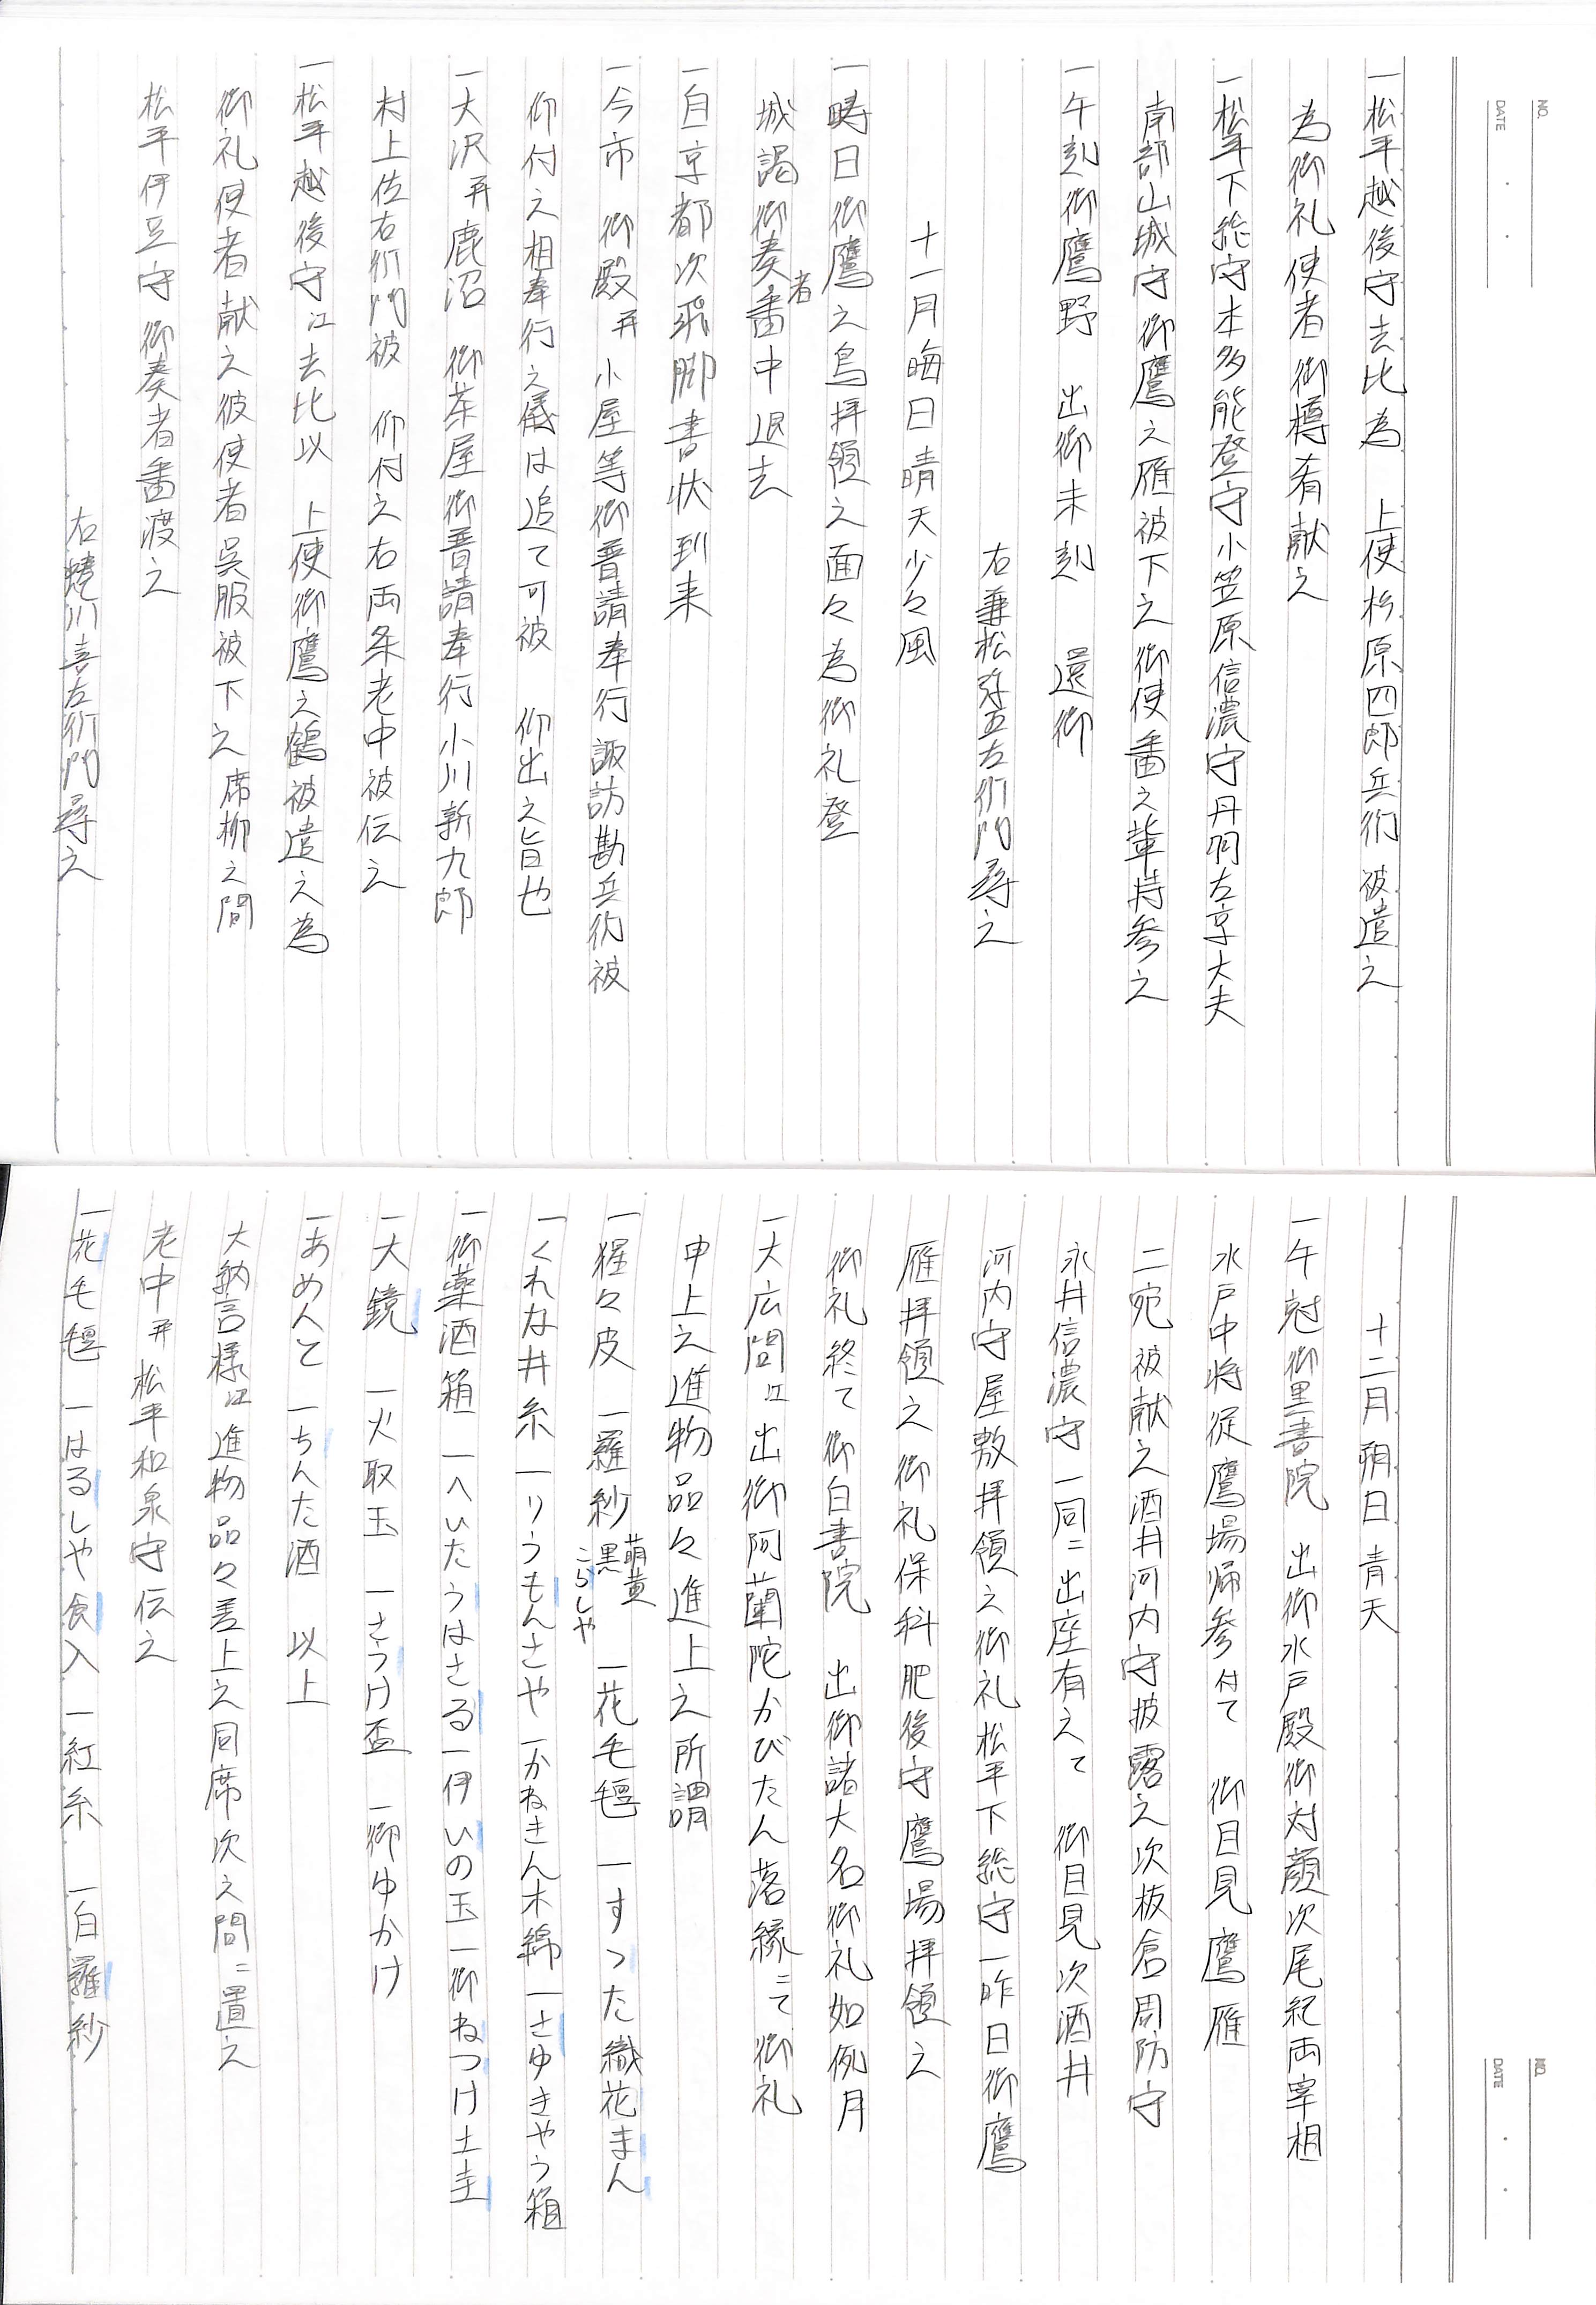 NO.
DATE
一松平越後守去比為 上使杉原四郎兵衛被遣之
為御礼使者御樽肴献之
一松平下総守本多能登守小笠原信濃守丹羽左京大夫
南部山城守御鷹之雁被下之御使番之輩持参之
一午刻御鷹野 出御未刻 還御
右兼松弥五左衛門尋之
十一月晦日晴天少々風
一時日御鷹之鳥拝領之面々為御礼登
城謁御奏者番中退去
一自京都次飛脚書状到来
一今市 御殿并小屋等御普請奉行諏訪勘兵衛被
仰付之相奉行之儀は追て可被 仰出之旨也
一大沢并鹿沼 御茶屋御普請奉行小川新九郎
村上佐右衛門被 仰付之右両条老中被伝之
一松平越後守江去比以 上使御鷹之鶴被遣之為
御礼使者献之彼使者呉服被下之席柳之間
松平伊豆守御奏者番渡之
右蜷川喜左衛門尋之
NO.
DATE
十二月朔日青天
一午刻御黒書院 出御水戸殿御対顔次尾紀両宰相
水戸中将従鷹場帰参付て 御目見鷹雁
二宛被献之酒井河内守披露之次板倉周防守
永井信濃守一同ニ出座有之て 御目見次酒井
河内守屋敷拝領之御礼松平下総守一昨日御鷹
雁拝領之御礼保科肥後守鷹場拝領之
御礼終て御白書院 出御諸大名御礼如例月
一大広間江出御阿蘭陀かびたん落縁ニて御礼
申上之進物品々進上之所謂
一猩々皮 一羅紗 萌黄 黒 こらしや 一花毛氈 一すつた織花まん
一くれな井糸 一りうもんさや 一かねきん木綿 一さゆきやう箱
一御薬酒箱 一へいたらはさる 一伊いの玉 一御ねつけ土圭
一大鏡 一火取玉 一さうけ盃 一御ゆかけ
一あめんと 一ちんた酒 以上
大納言様江進物品々差上之同席次之間ニ置之
老中并松平和泉守伝之
一花毛氈 一はるしや食入 一紅糸 一白羅紗